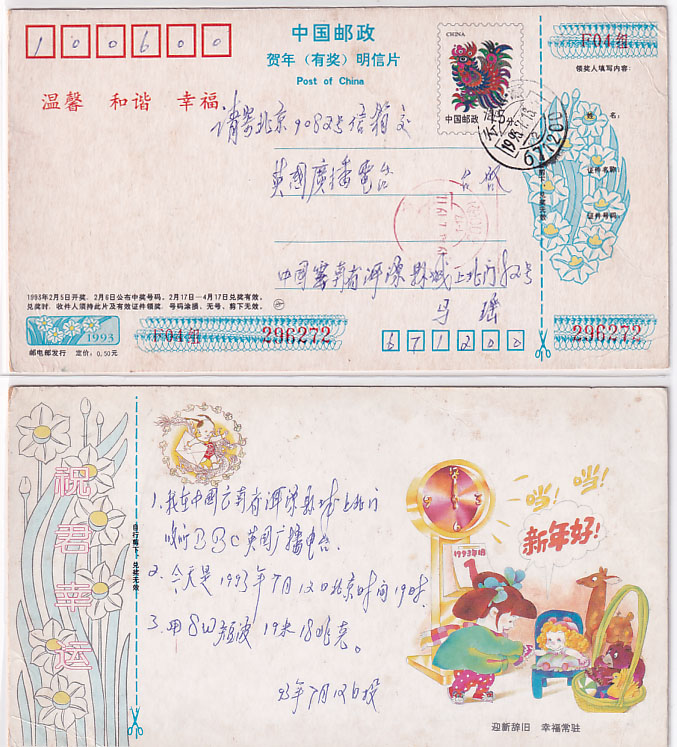 1 0 0 6 0 0
中国邮政
贺年（有奖）明信片
Post of China
温馨 和谐 幸福
CHINA
中国邮政
F04组
领奖人填写内容：
姓 名：
证件名称：
证件号码：
请寄北京9082号信箱交
英國廣播電台 台啟
1993.7.13
671200
中国雲南省洱源縣城上北门82号
马瑶
1993年2月5日开奖，2月6日公布中奖号码，2月17日—4月17日兑奖有效。
兑奖时，收件人须持此片及有效证件领奖，号码涂损、无号、剪下无效。
1993
邮电部发行 定价：0.50元
F04组 296272
6 7 1 2 0 0
296272
祝君幸运
自行剪下，兑奖无效
1、我在中国云南省洱源县城上北门
收听BBC英国广播电台.
2、今天是1993年7月12日北京时间19时.
3、用SW短波19米18兆克。
93年7月12日投
当！当！
新年好！
1993年
1
迎新辞旧 幸福常驻